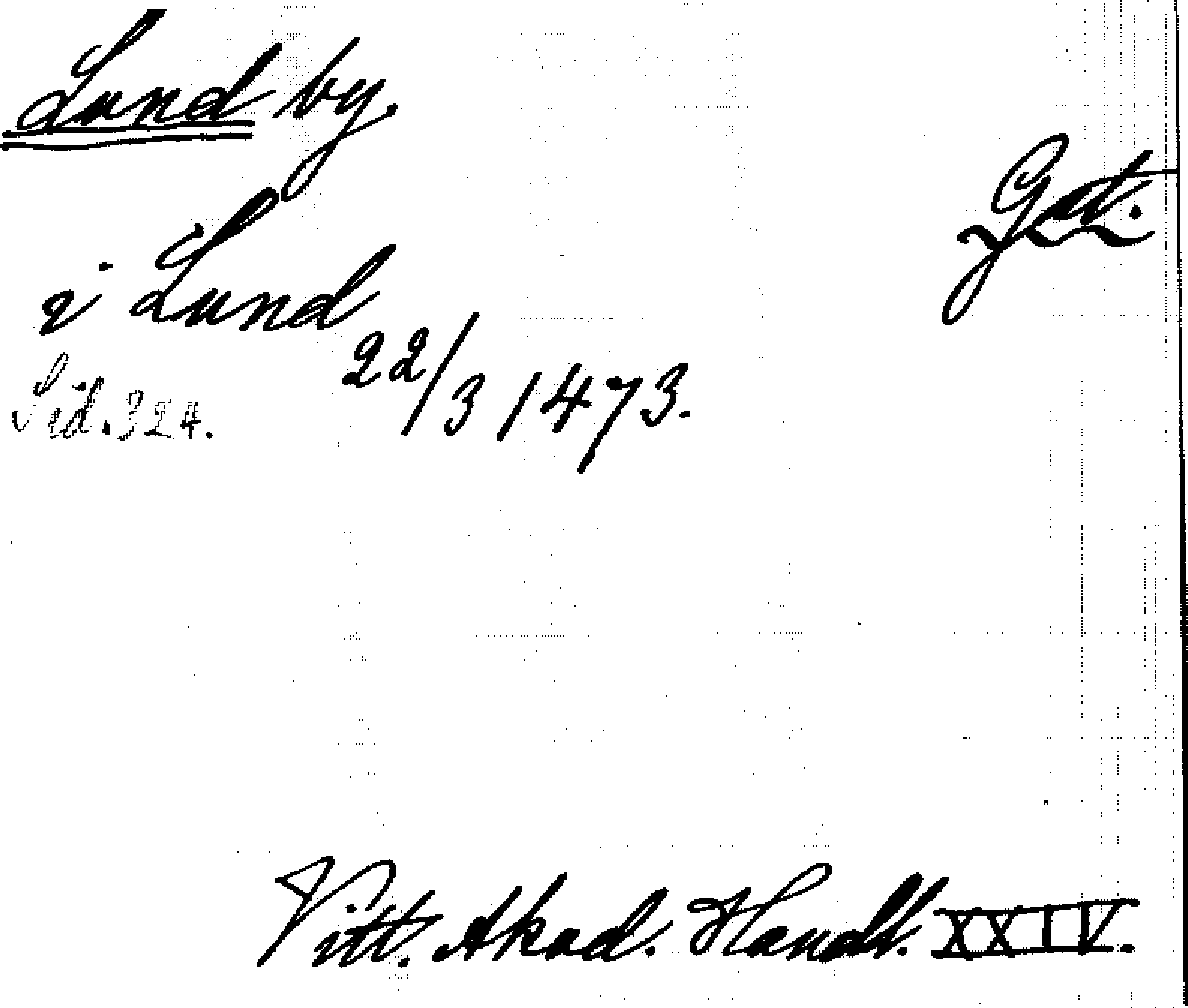 Lund by.
Got.
i Lund
22/3 1473.
Sid. 324.
Vitt. Akad. Handl. XXIV.